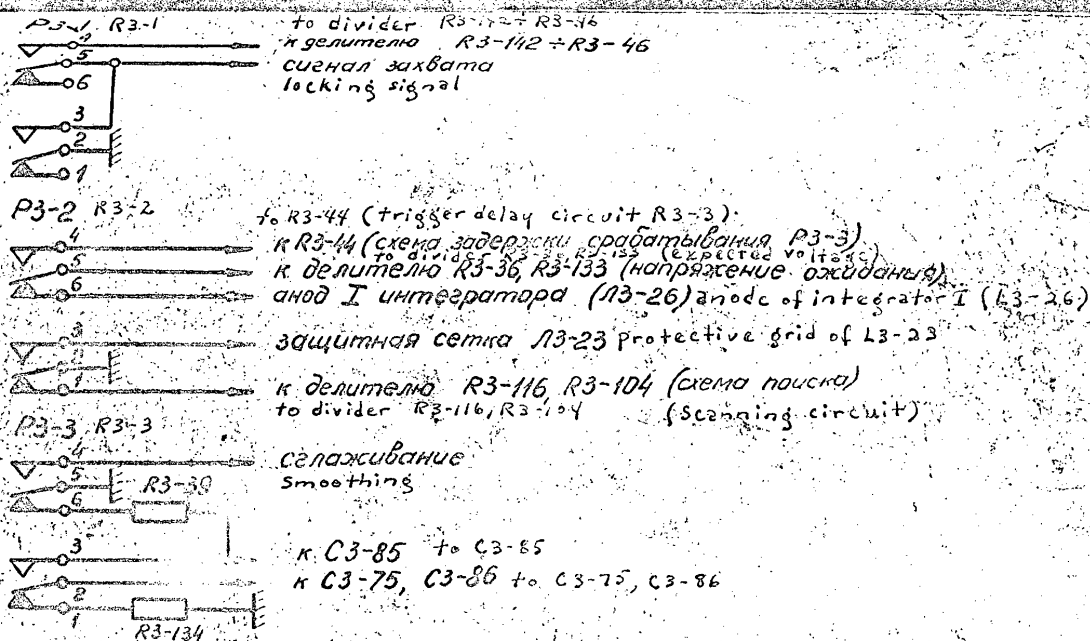 Р3-1 R3-1
to divider R3-142÷R3-46
4
к делителю R3-142÷R3-46
5
сигнал захвата
6
locking signal
3
2
1
Р3-2 R3-2
to R3-44 (trigger delay circuit R3-3).
4
к R3-44 (схема задержки срабатывания Р3-3)
to divider R3-36, R3-133 (expected voltage)
5
к делителю R3-36, R3-133 (напряжение ожидания)
6
анод I интегратора (Л3-26) anode of integrator I (L3-26)
3
защитная сетка Л3-23 protective grid of L3-23
1
к делителю R3-116, R3-104 (схема поиска)
to divider R3-116, R3-104 (Scanning circuit)
Р3-3 R3-3
4
сглаживание
5
smoothing
R3-39
6
3
к С3-85 to C3-85
к С3-75, С3-86 to C3-75, C3-86
2
1
R3-134